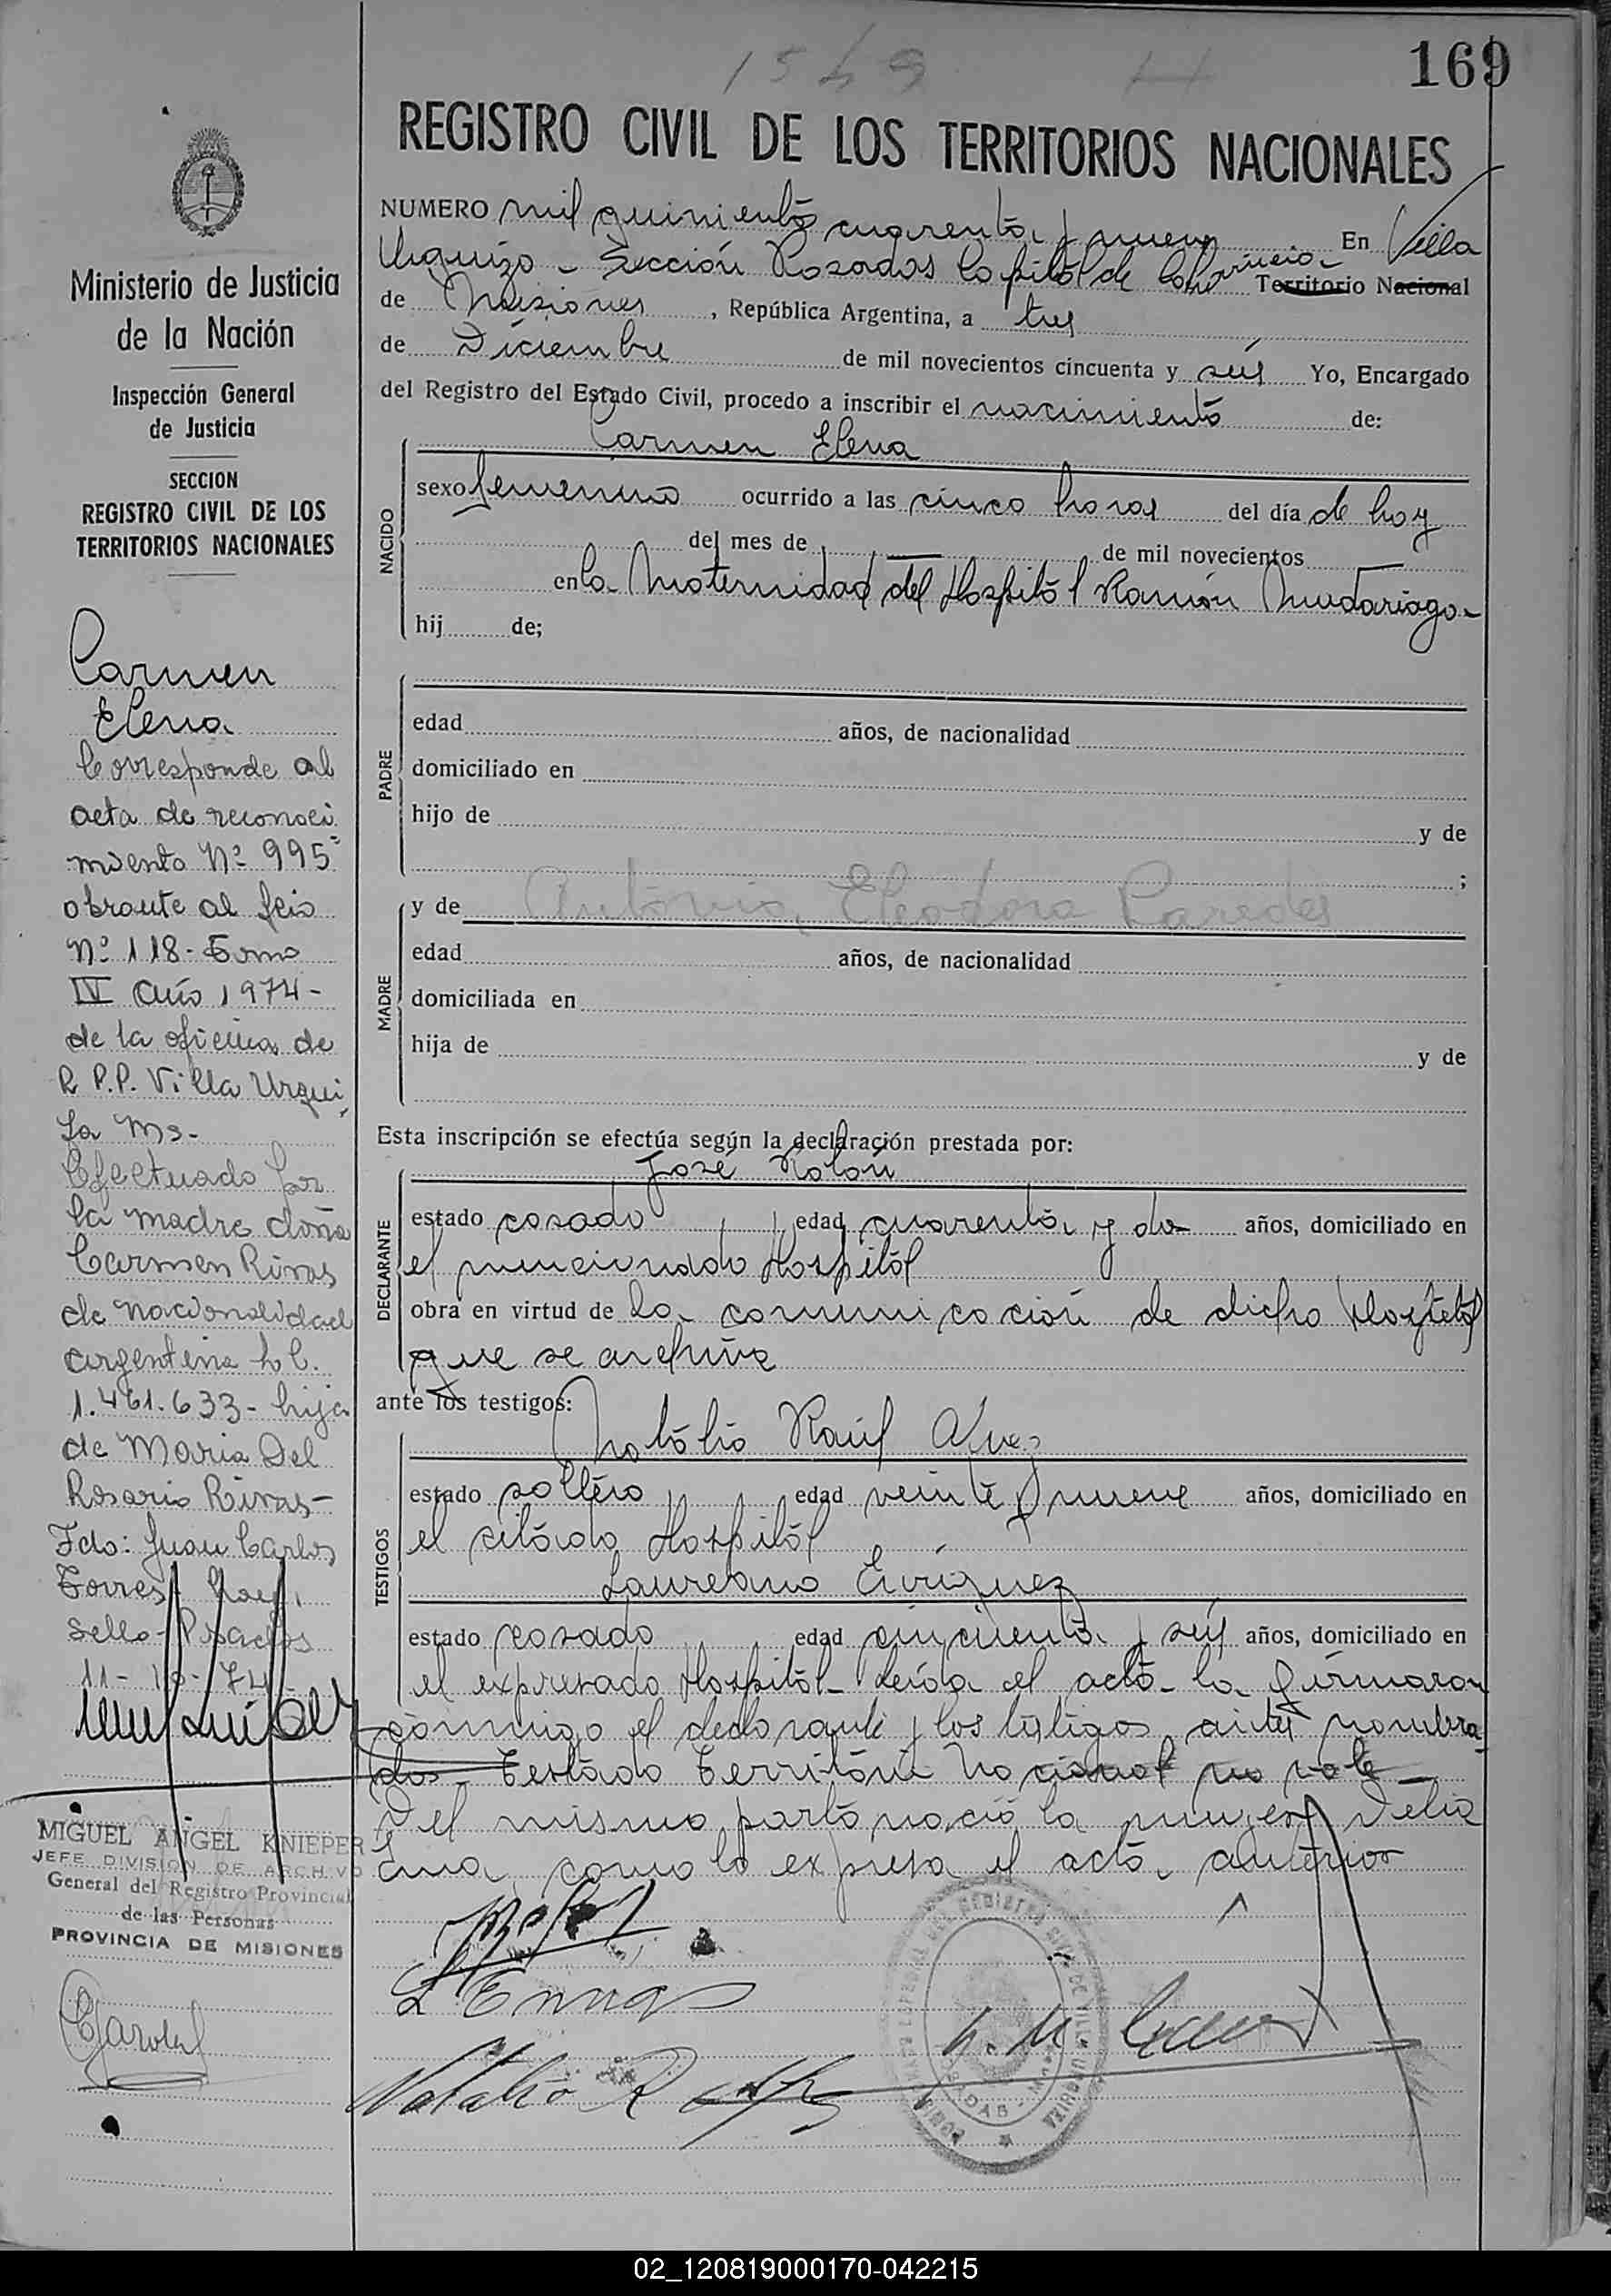 1549
169
REGISTRO CIVIL DE LOS TERRITORIOS NACIONALES
NUMERO mil quinientos cuarenta y nueve En Villa
Urquiza - Sección Posadas Capital de la Provincia Territorio Nacional
de Misiones, República Argentina, a tres
de Diciembre de mil novecientos cincuenta y seis Yo, Encargado
del Registro del Estado Civil, procedo a inscribir el nacimiento de:
NACIDO
Carmen Elena
sexo femenino ocurrido a las cinco horas del día de hoy
del mes de — de mil novecientos —
en la Maternidad del Hospital Ramón Madariaga
hij de;
PADRE
edad años, de nacionalidad
domiciliado en
hijo de y de
;
MADRE
y de Antonia Eleodora Paredes
edad años, de nacionalidad
domiciliada en
hija de y de
Esta inscripción se efectúa según la declaración prestada por:
DECLARANTE
José Rolón
estado casado edad cuarenta y dos años, domiciliado en
el mencionado Hospital
obra en virtud de la comunicación de dicho Hospital
que se archiva
ante los testigos:
TESTIGOS
Natalio Raúl Alvez
estado soltero edad veinte y nueve años, domiciliado en
el citado Hospital
Laureano Enriquez
estado casado edad cincuenta y seis años, domiciliado en
el expresado Hospital - Leída el acta - la firmaron
conmigo el declarante y los testigos antes nombra
dos - Testado Territorio Nacional no vale —
Del mismo parto nació la mujer Delia
Ema, como lo expresa el acta anterior
L Enriqz
Natalio R
Ministerio de Justicia
de la Nación
Inspección General
de Justicia
SECCION
REGISTRO CIVIL DE LOS
TERRITORIOS NACIONALES
Carmen
Elena
Corresponde al
acta de reconoci
miento Nº 995
obrante al folio
Nº 118 - Tomo
IV Año 1974 -
de la oficina de
R P.P. Villa Urqui
za Ms -
Efectuado por
la madre doña
Carmen Rivas
de nacionalidad
argentina L C.
1.461.633 - hija
de Maria Del
Rosario Rivas -
Fdo: Juan Carlos
Torres
Sello - Posadas
11-10-74
MIGUEL ANGEL KNIEPER
JEFE DIVISION DE ARCHIVO
General del Registro Provincial
de las Personas
PROVINCIA DE MISIONES
02_120819000170-042215